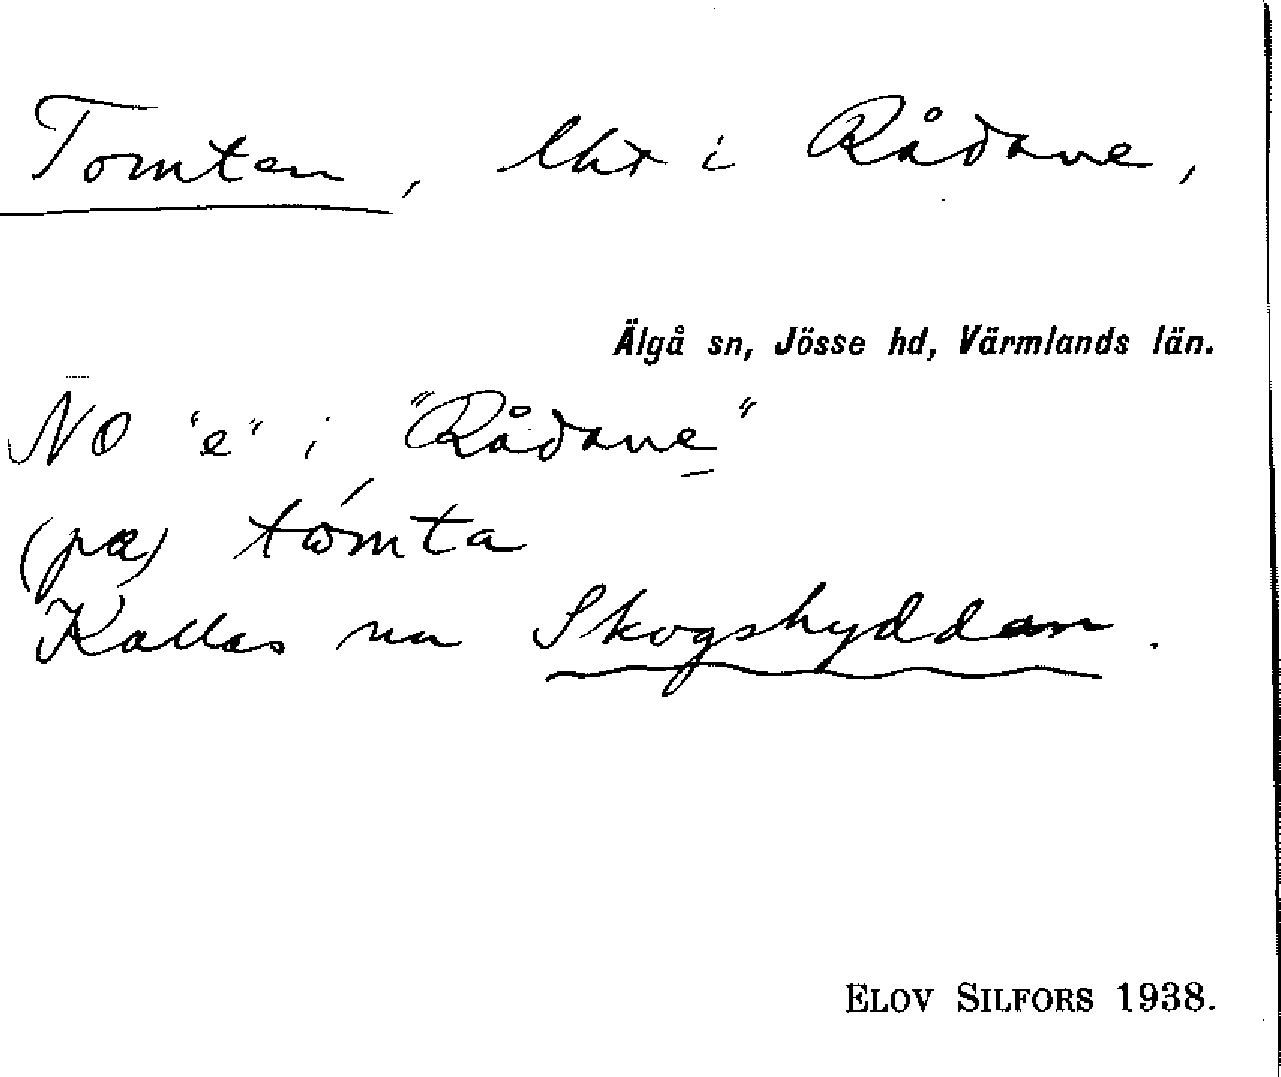 Tomten, lht i Rådane,
Älgå sn, Jösse hd, Värmlands län.
NO "e" i "Rådane"
(pæ) tómta
Kallas nu Skogshyddan.
ELOV SILFORS 1938.